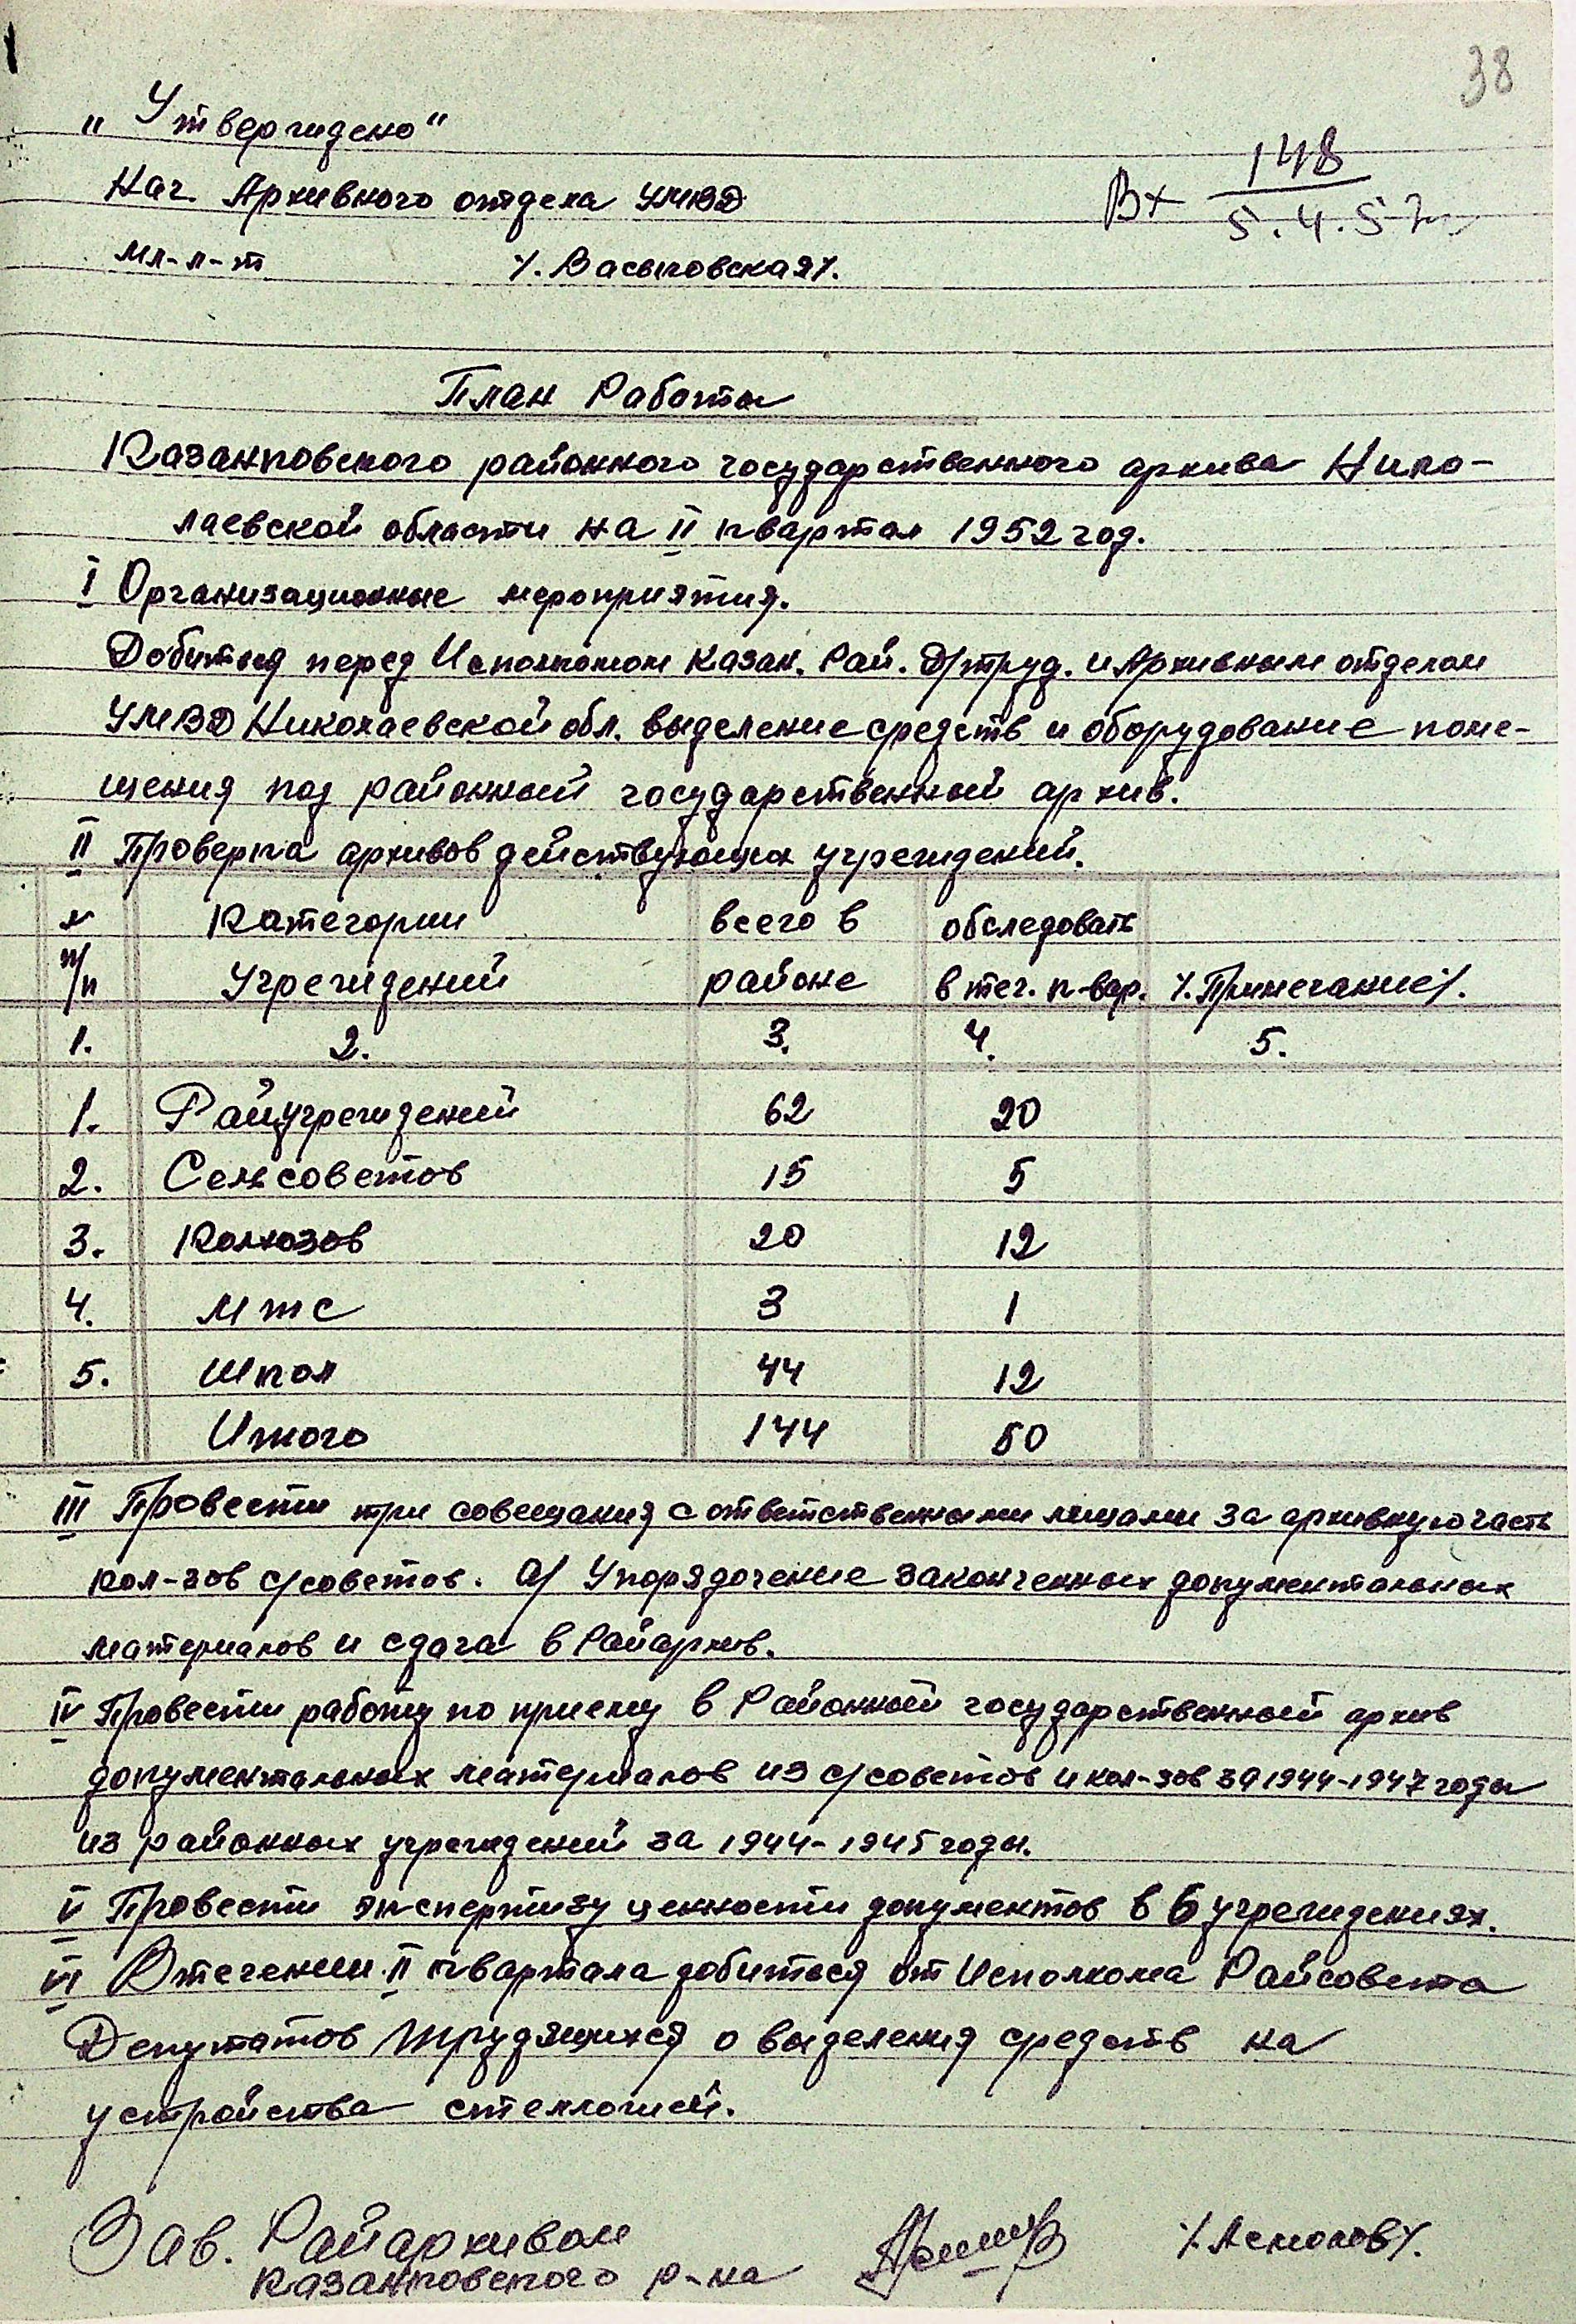 38
„Утверждено“
Нач. Архивного отдела УМВД
Вх 148
5.4.52
мл-л-т /. Васьковская/.
План Работы
Казанковского районного государственного архива Нико-
лаевской области на II квартал 1952 год.
I Организационные мероприятия.
Добиться перед Исполкомом Казан. Рай. Д/труд. и Архивным отделом
УМВД Николаевской обл. выделение средств и оборудование поме-
щения под районный государственный архив.
II Проверка архивов действующих учреждений.
№ Категории всего в обследовать
п/п Учреждений районе в теч. к-вар. /.Примечание/.
1. 2. 3. 4. 5.
1. Райучреждений 62 20
2. Сельсоветов 15 5
3. Колхозов 20 12
4. МТС 3 1
5. Школ 44 12
Итого 144 50
III Провести три совещания с ответственными лицами за архивную часть
кол-зов с/советов. а/ Упорядочение законченных документальных
материалов и сдача в Райархив.
IV Провести работу по приему в Районный государственный архив
документальных материалов из с/советов и кол-зов за 1944-1947 годы
из районных учреждений за 1944-1945 годы.
V Провести экспертизу ценности документов в 6 учреждениях.
VI В течении II квартала добиться от Исполкома Райсовета
Депутатов трудящихся о выделения средств на
устройства стеллажей.
Зав. Райархивом
Казанковского р-на /.Асмолов/.